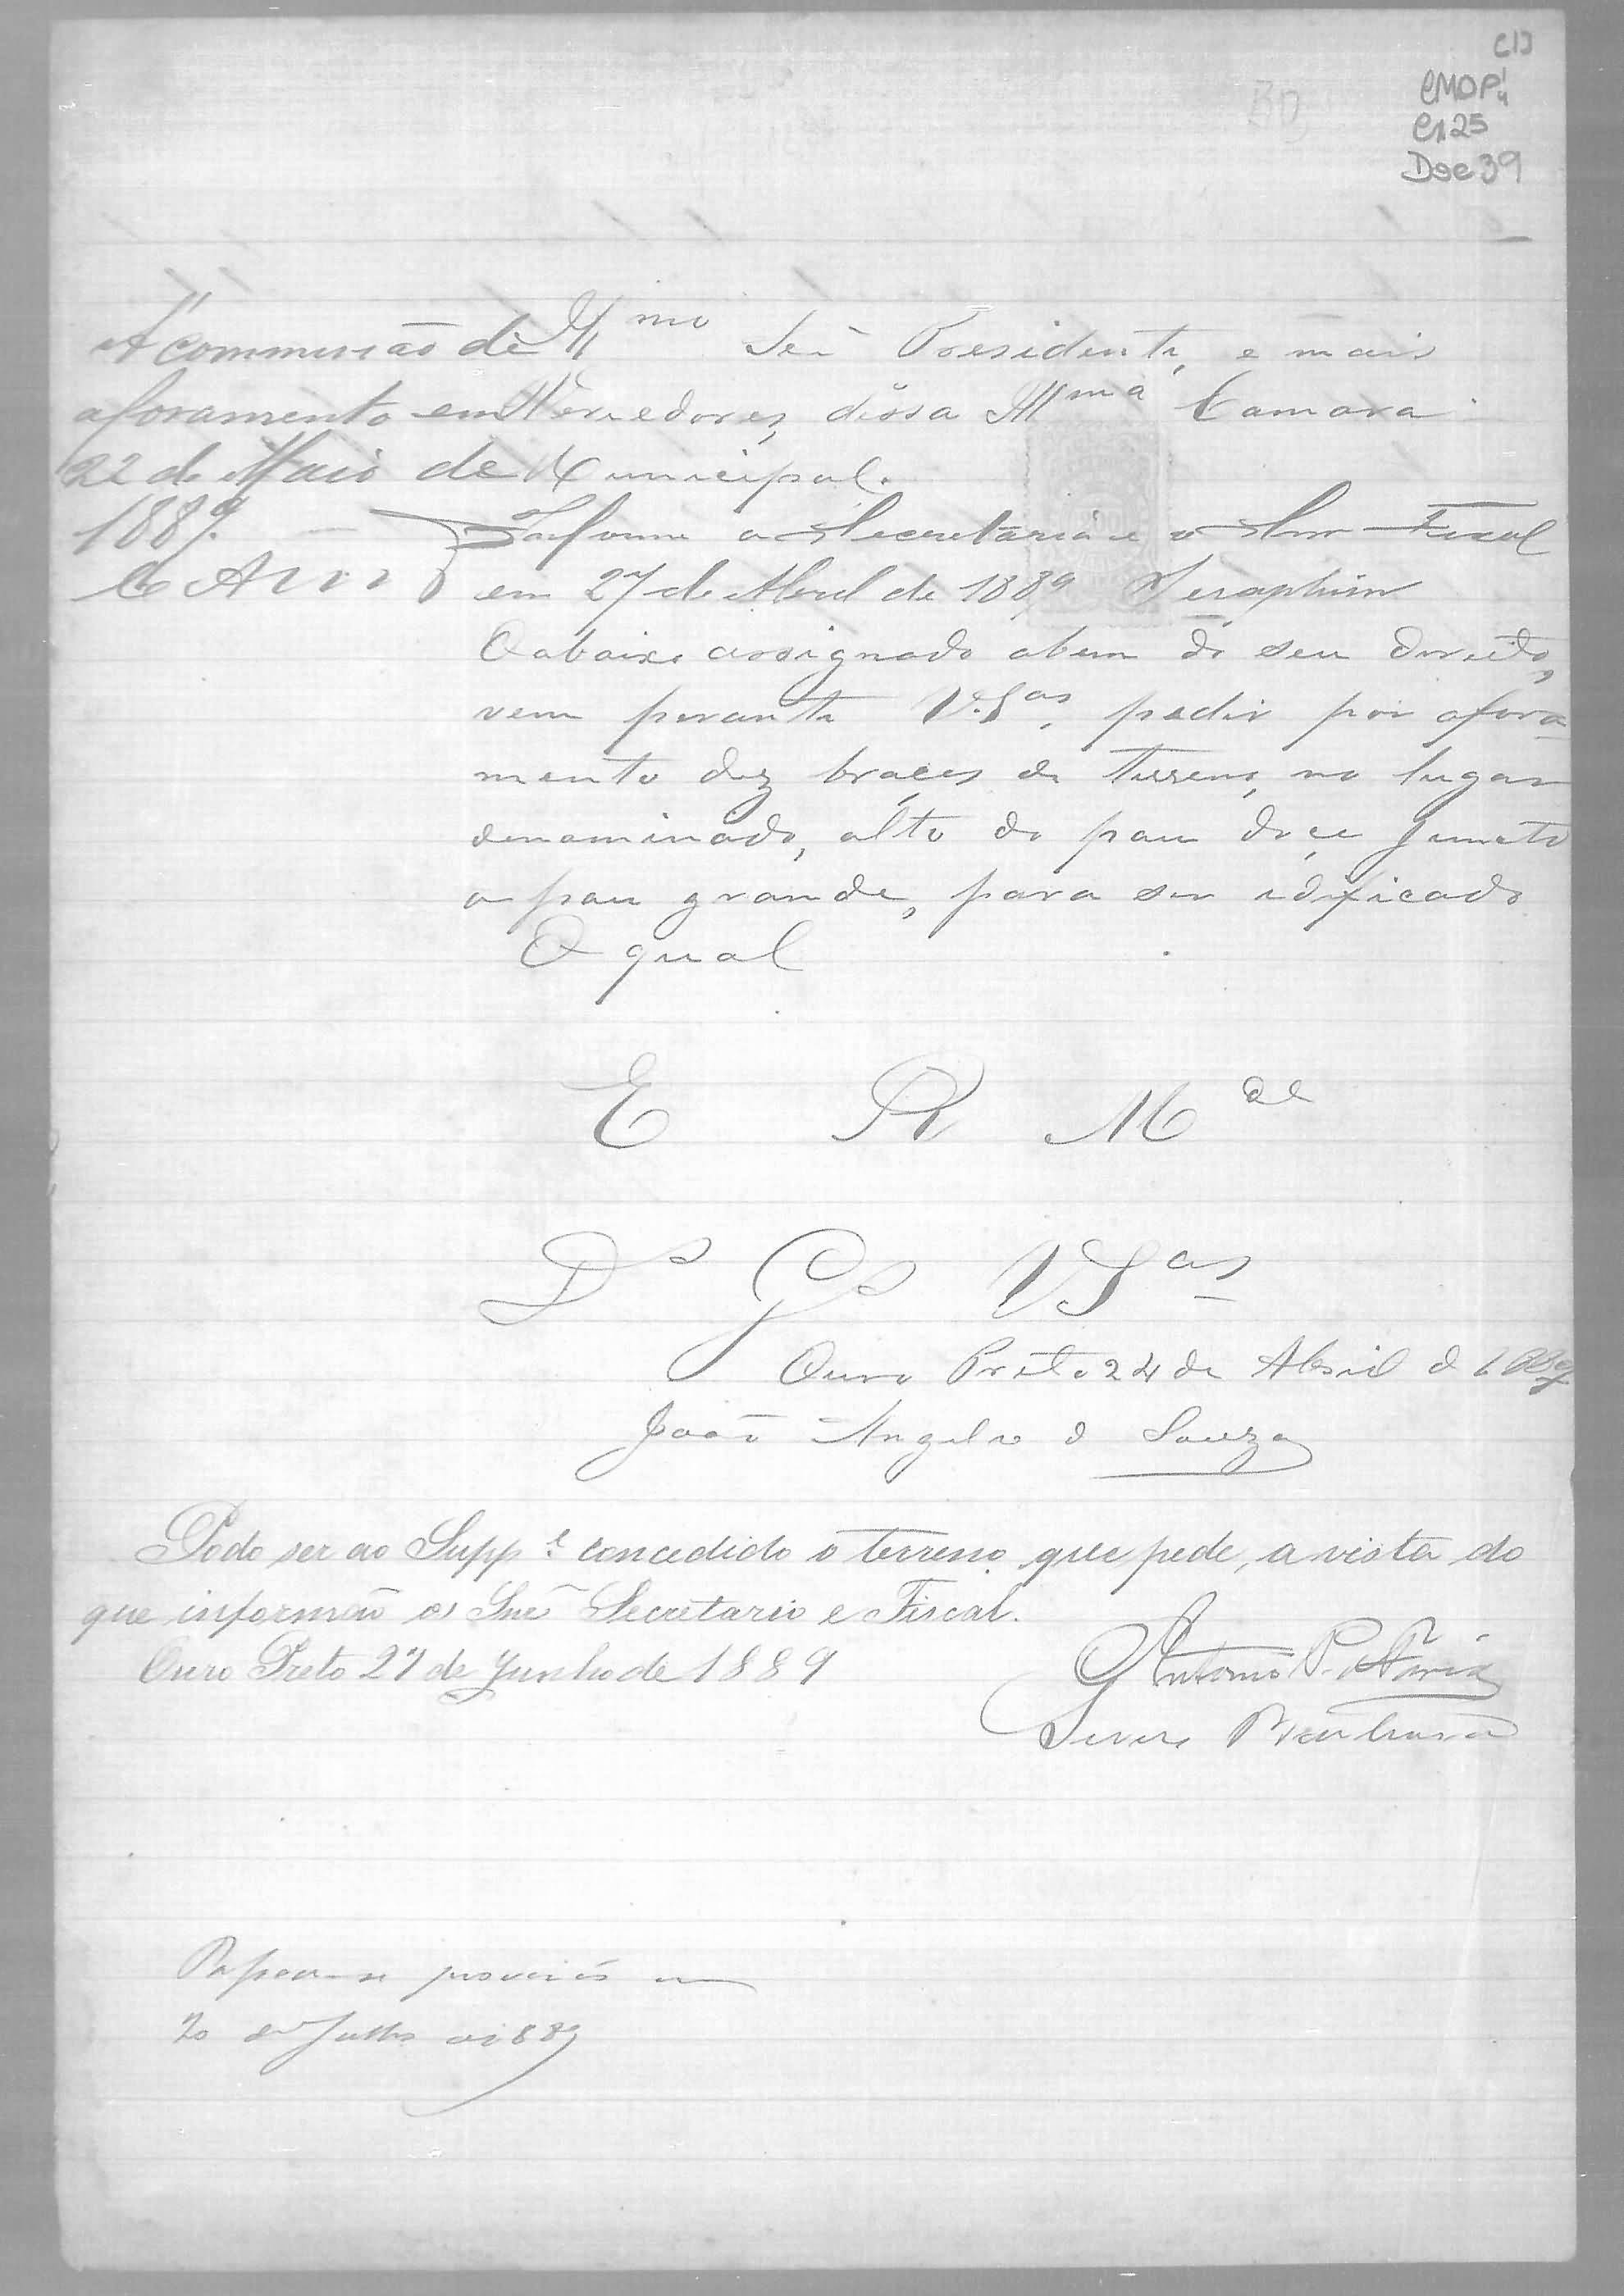 CMOP
Cx 25
Doc 39
A' commissão de
aforamento em
22 de Maio de
1889.
Illmo Senr Presidente, e mais
Vereedores, dessa Illma Camara
Municipal.
Informe a Secretaria e o Snr Fiscal
em 27 de Abril de 1889 Seraphim
O abaixo assignado abem do seu direito,
vem perante V.Sas, pedir por afora
mento dez braças de terreno, no lugar
denominado, alto do pau doçe juncto
a pau grande, para ser edificado
O qual
E R Mce
Ds Gs VSas
Ouro Preto 24 de Abril d 1889
João Angelo d Souza
Pode ser ao Suppe concedido o terreno que pede, a vista do
que informão os Snrs Secretario e Fiscal.
Ouro Preto 27 de Junho de 1889
Antonio P.
em
20 de Julho de 1889